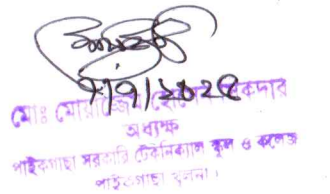 ৭/৭/২০২৫
মোঃ মোয়াজ্জেম হোসেন
অধ্যক্ষ
পাইকগাছা সরকারি টেকনিক্যাল স্কুল ও কলেজ
পাইকগাছা খুলনা।